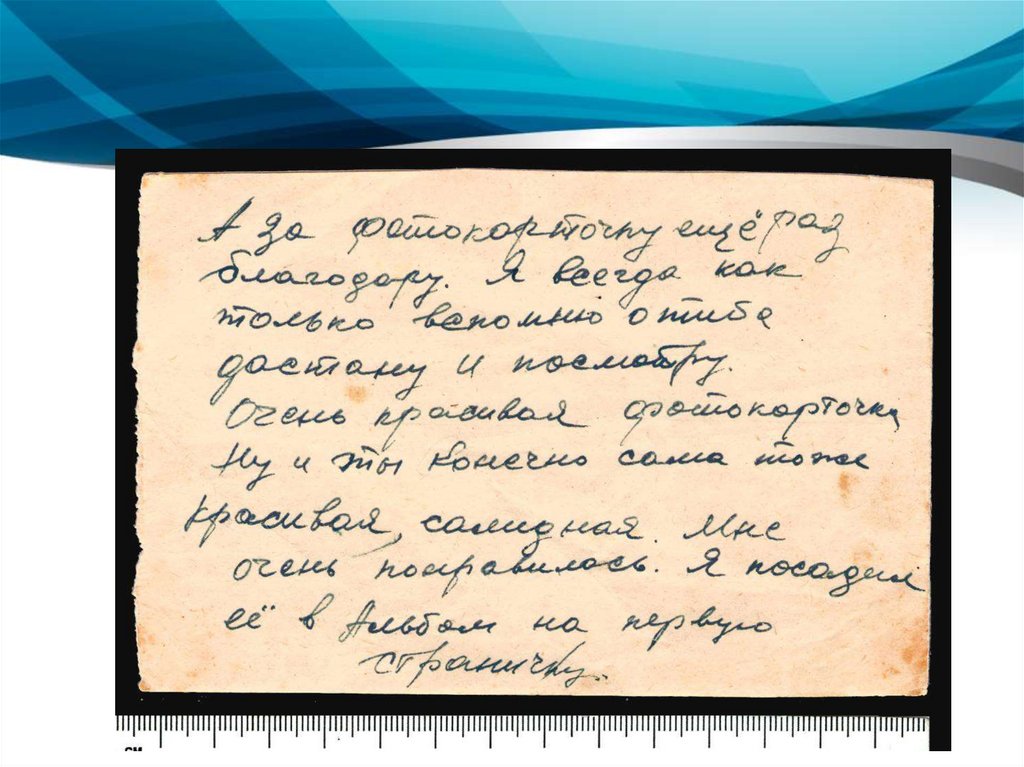 А за фотокарточку ещё раз
благодару. Я всегда как
только вспомню о тиба
дастану и посмотру.
Очень красивая фотокарточка
Ну и ты конечно сама тоже
красивая, салидная. Мне
очень понравилось. Я посадил
её в Альбом на первую
страничку.
см